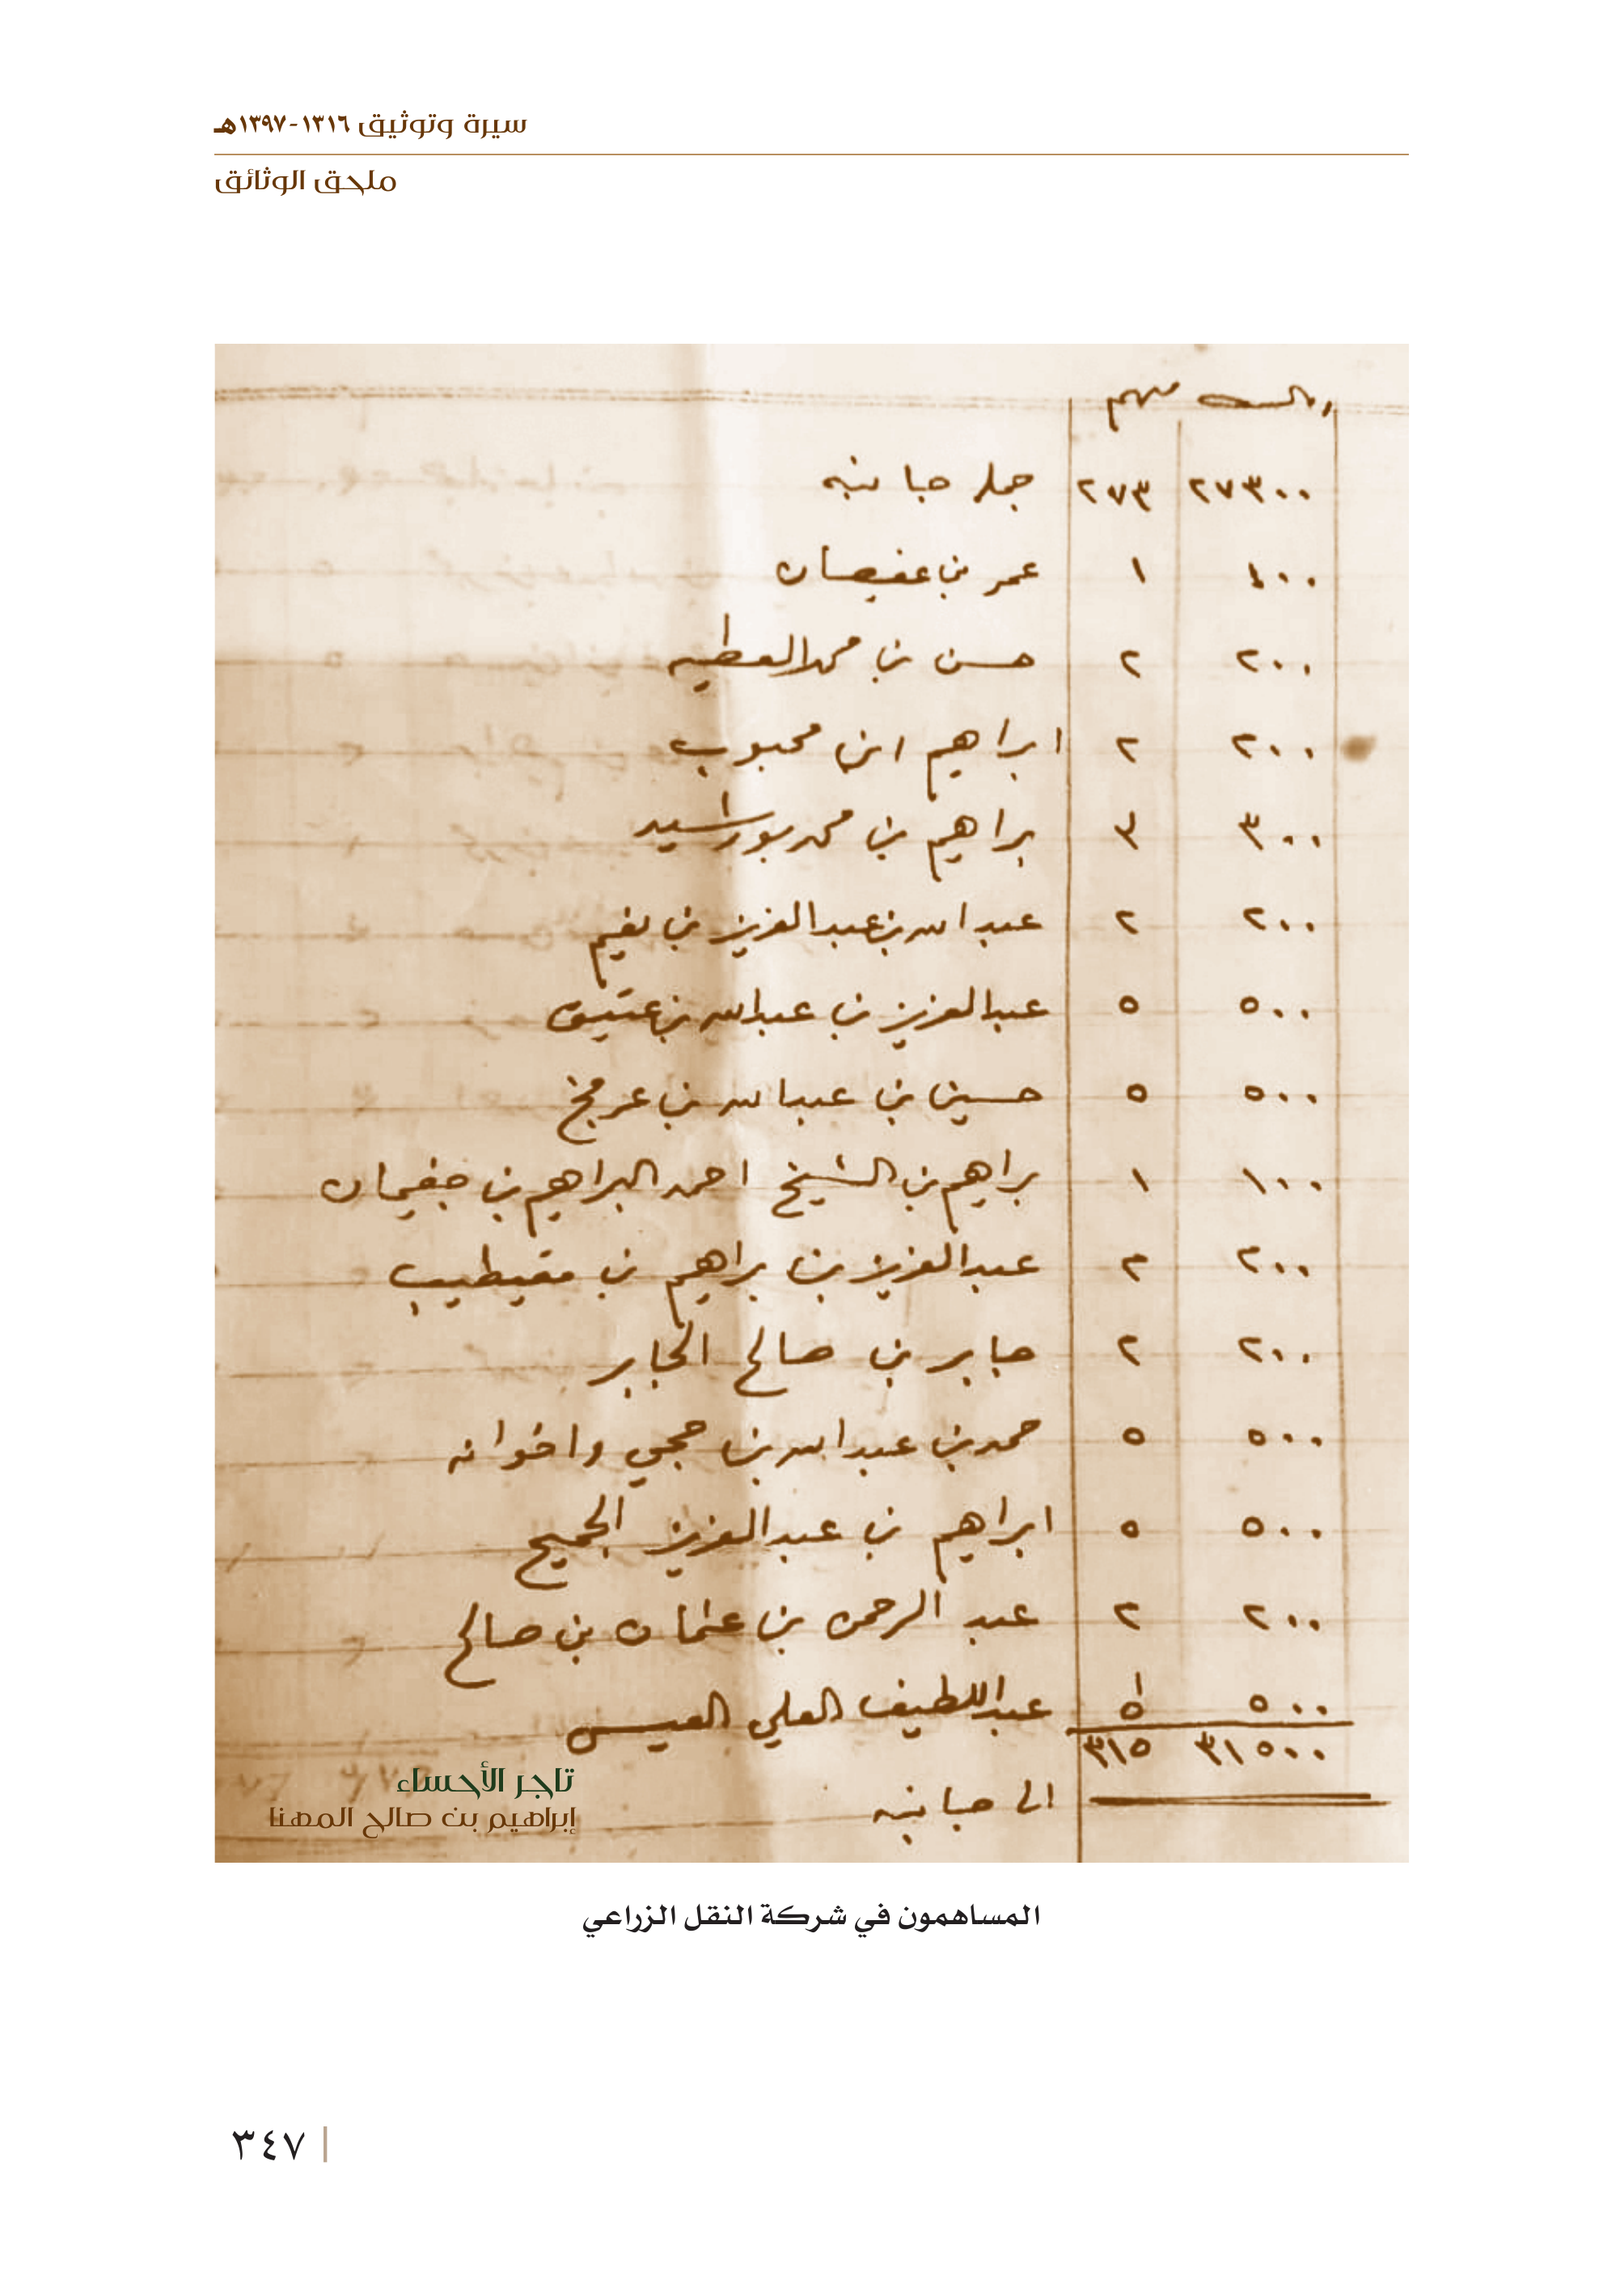 سيرة وتوثيق ١٣١٦-١٣٩٧هـ
ملحق الوثائق
ريالـــه سهم
٢٧٣٠٠ ٢٧٣ جمله جانبه
١٠٠ ١ عمر بن عفيصان
٢٠٠ ٢ حسن بن محمد العطيه
٢٠٠ ٢ ابراهيم ابن محبوب
٣٠٠ ٣ براهيم بن محمد بوراشيد
٢٠٠ ٢ عبد الله بن عبد العزيز بن نعيم
٥٠٠ ٥ عبد العزيز بن عبد الله بن عتيق
٥٠٠ ٥ حسين بن عبد الله بن عرفج
١٠٠ ١ براهيم بن الشيخ احمد البراهيم بن جغيمان
٢٠٠ ٢ عبد العزيز بن براهيم بن مقيطيب
٢٠٠ ٢ جابر بن صالح الجابر
٥٠٠ ٥ حمد بن عبد الله بن حجي واخوانه
٥٠٠ ٥ ابراهيم بن عبد العزيز الجميح
٢٠٠ ٢ عبد الرحمن بن عثمان بن صالح
٥٠٠ ٥ عبد اللطيف العلي العيسى
٣١٥٠٠ ٣١٥
الى جانبه
تاجر الأحساء
إبراهيم بن صالح المهنا
المساهمون في شركة النقل الزراعي
٣٤٧